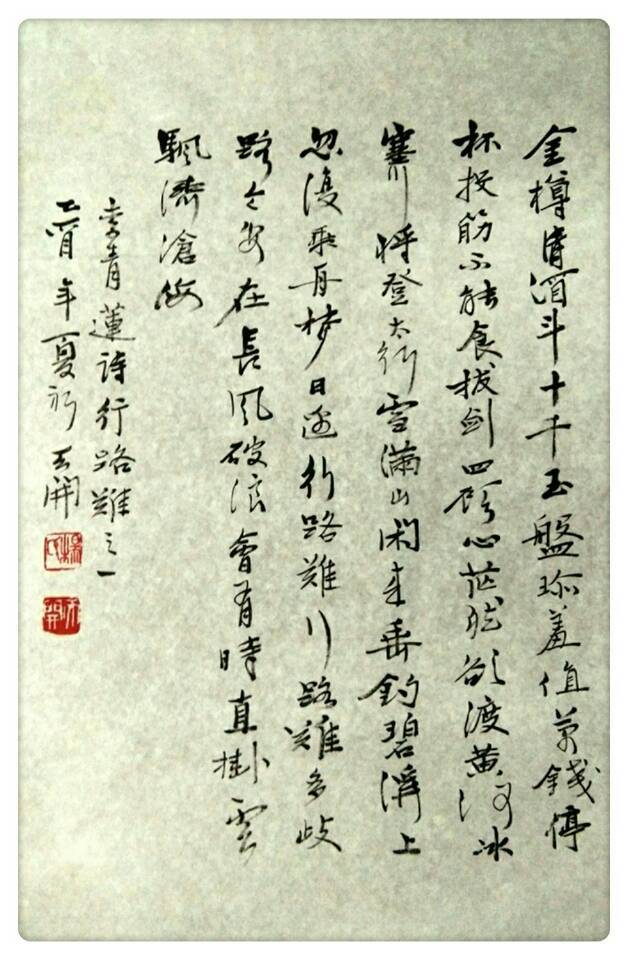 金樽清酒斗十千玉盤珎羞值萬錢停
杯投筯不能食拔劍四顧心茫然欲渡黃河冰
塞川將登太行雪滿山閑來垂釣碧溪上
忽復乘舟夢日邊行路難行路難多歧
路今安在長風破浪會有時直掛雲
颿濟滄海
李青蓮詩行路難之一
乙酉年夏初天開